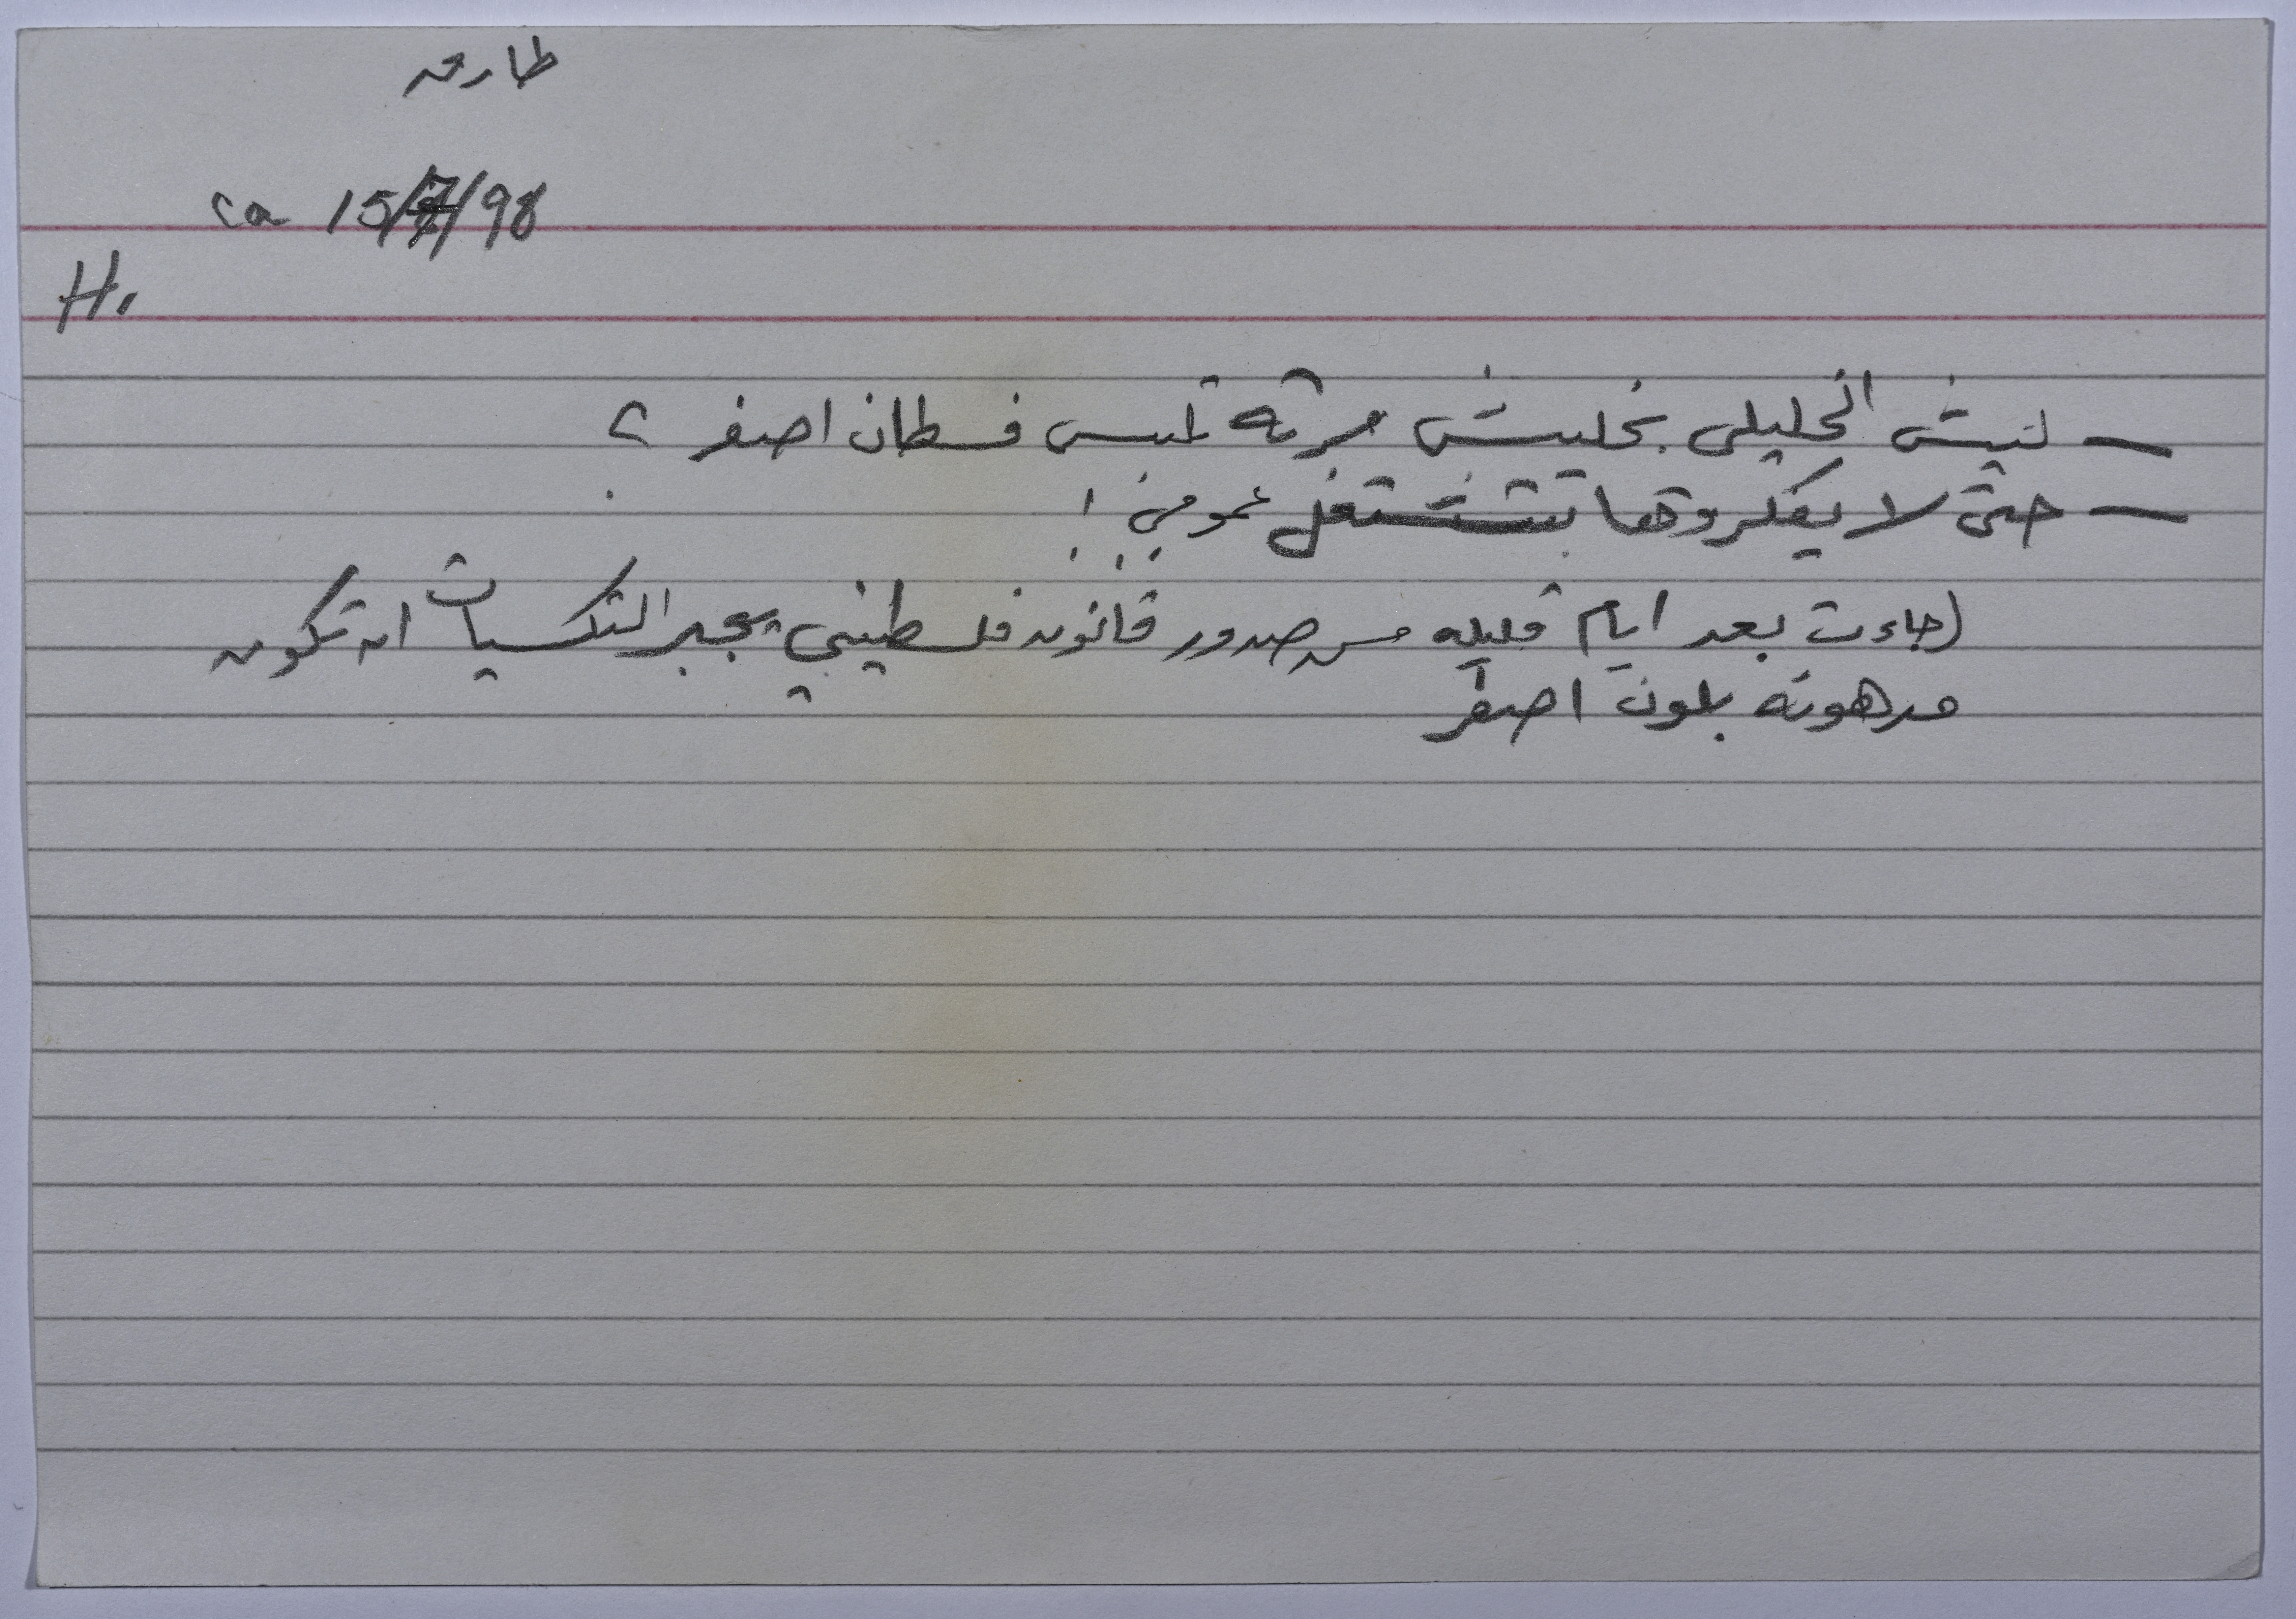 طارق
ca 15/7/98
H.
— ليش الخليلي بخليش مرته تلبس فسطان اصفر ؟
— حتى لا يفكروها بتشتغل عمومي !
(جاءت بعد ايام قليله من صدور قانون فلسطيني يجبر التكسيات ان تكون
مدهونه بلون اصفر